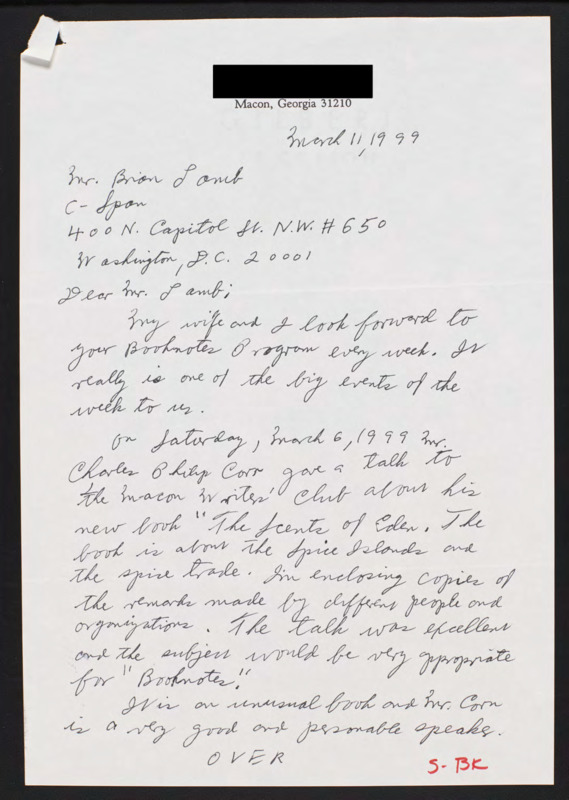 Macon, Georgia 31210
March 11, 1999
Mr. Brian Lamb
C-Span
400 N. Capitol St. N.W. # 650
Washington, D.C. 20001
Dear Mr. Lamb;
My wife and I look forward to
your Booknotes Program every week. It
really is one of the big events of the
week to us.
On Saturday, March 6, 1999 Mr.
Charles Philip Corn gave a talk to
the Macon Writers' Club about his
new book "The Scents of Eden. The
book is about the Spice Islands and
the spice trade. I'm enclosing copies of
the remarks made by different people and
organizations. The talk was excellent
and the subject would be very appropriate
for "Booknotes."
It is an unusual book and Mr. Corn
is a very good and personable speaker.
OVER
S-BK